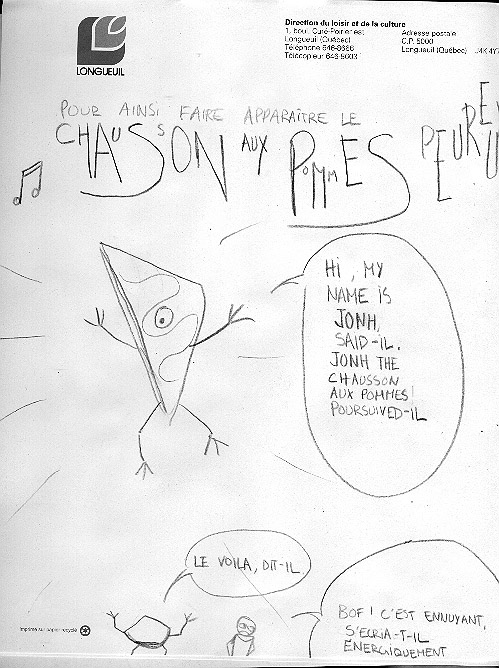 LONGUEUIL
Direction du loisir et de la culture
1, boul. Curé-Poirier est
Longueuil (Québec)
Téléphone 646-8666
Télécopieur 646-8003
Adresse postale
C.P. 5000
Longueuil (Québec) J4K 4Y
POUR AINSI FAIRE APPARAÎTRE LE
CHAUSSON AUX POMMES PEUREU
HI, MY
NAME IS
JONH,
SAID-IL.
JONH THE
CHAUSSON
AUX POMMES!
POURSUIVED-IL
LE VOILA, DIT-IL.
BOF! C'EST ENNUYANT,
S'ECRIA-T-IL
ENERGIQUEMENT
Imprimé sur papier recyclé